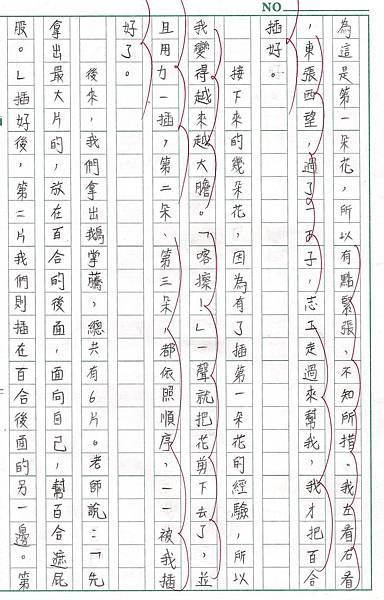 NO
為這是第一朵花，所以有點緊張、不知所措、我左看右看
，東張西望，過了一下子，志工走過來幫我，我才把百合
插好。
接下來的幾朵花，因為有了插第一朵花的經驗，所以
我變得越來越大膽。「喀擦！」一聲就把花剪下去了，並
且用力一插，第二朵、第三朵，都依照順序，一一被我插
好了。
後來，我們拿出鵝掌藤，總共有6片。老師說：「先
拿出最大片的，放在百合的後面，面向自己，幫百合遮屁
股。」插好後，第二片我們則插在百合後面的另一邊。第